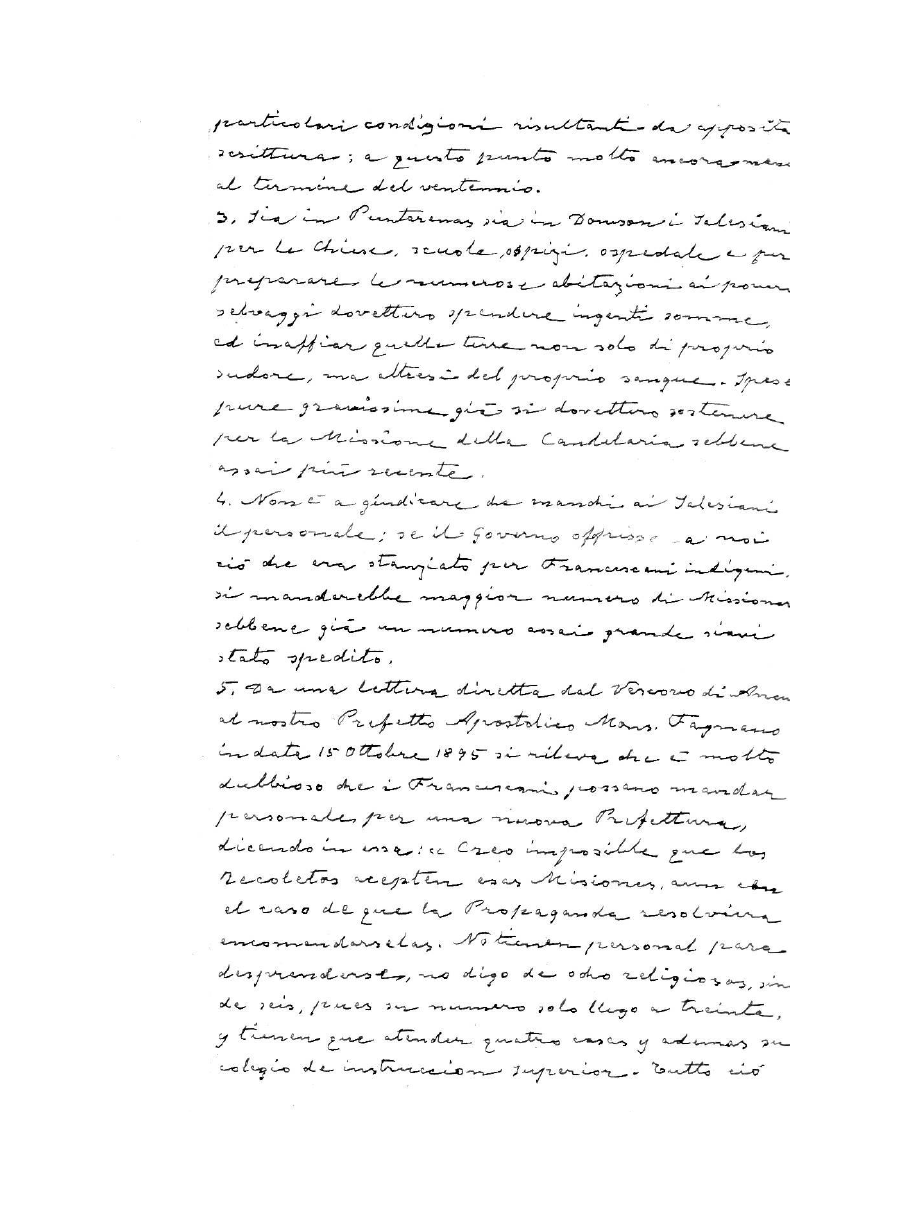 particolari condizioni risultanti da apposita
scrittura; a questo punto molto ancora manca
al termine del ventennio.
3. Sia in Puntarenas sia in Dawson i Salesiani
per le Chiese, scuole, ospizi, ospedale e per
preparare le numerose abitazioni ai poveri
selvaggi dovettero spendere ingenti somme,
ed inaffiar quelle terre non solo di proprio
sudore, ma altresi del proprio sangue. Spese
pure gravissime già si dovettero sostenere
per la Missione della Candelaria sebbene
assai più recente.
4. Non è a giudicare che manchi ai Salesiani
il personale; se il Governo offrisse a noi
ciò che era stanziato per Francescani indigeni,
si manderebbe maggior numero di Missionar
sebbene già un numero assai grande siavi
stato spedito.
5. Da una lettera diretta dal Vescovo di Ancu
al nostro Prefetto Apostolico Mons. Fagnano
in data 15 Ottobre 1895 si rileva che è molto
dubbioso che i Francescani possano mandar
personale per una nuova Prefettura,
dicendo in essa: « Creo imposible que los
Recoletos acepten esas Misiones, aun en
el caso de que la Propaganda resolviera
encomendarselas. No tienen personal para
desprenderse, no digo de ocho religiosos, sin
de seis, pues su numero solo llego a treinta,
y tienen que atender quatro casas y ademas su
colegio de instruccion superior. Tutto ciò